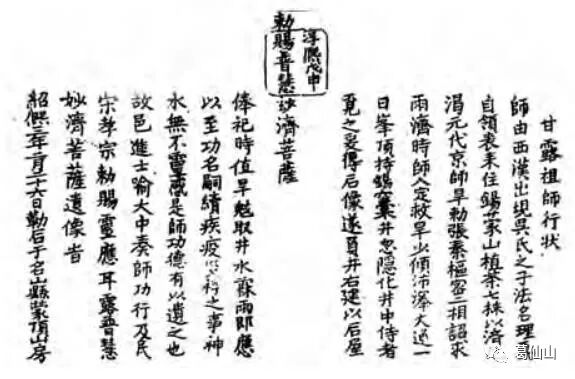 甘露祖師行状
師由西漢出現吳氏之子法名理
自領表来住錫蒙山植茶七株以濟
渴元代京師旱勅張秦樞密二相詔求
雨濟時師入定救旱少傾沛澤大逋一
日峯頂持錫窠井忽隱化井中侍者
覓之爰得石像遂負井右建以石屋
淳熈戊申
勅賜普慧妙濟菩薩
俸祀時值旱魃取井水霖雨即應
以至功名嗣續疾疫之事神
水無不靈感是師功德有以遺之也
故邑進士喻大中奏師功行及民
宋孝宗勅賜靈應甘露普慧
妙濟菩薩遺像旨
紹熈三年二月二十六日勒石于名山縣蒙頂山房
葛仙山